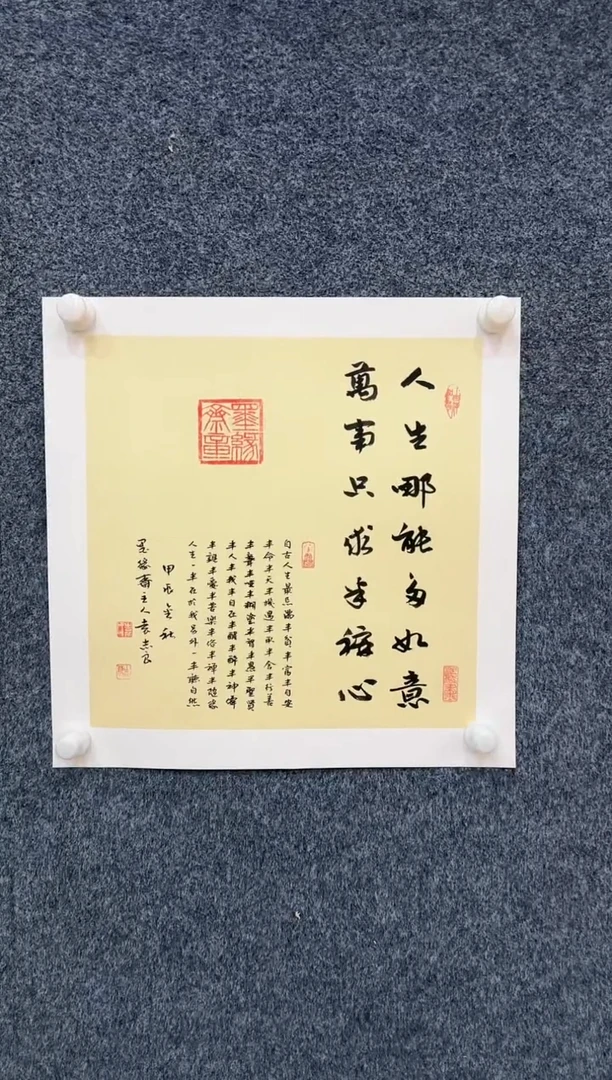 人生哪能多如意
萬事只求半稱心
自古人生最忌滿半貧半富半自安
半命半天半機遇半取半舍半行善
半聾半啞半糊塗半智半愚半聖賢
半人半我半自在半醒半醉半神僊
半親半愛半苦樂半俗半禪半隨緣
人生一半在於我另外一半聽自然
甲辰金秋
墨緣齋主人袁志良
墨緣齋印